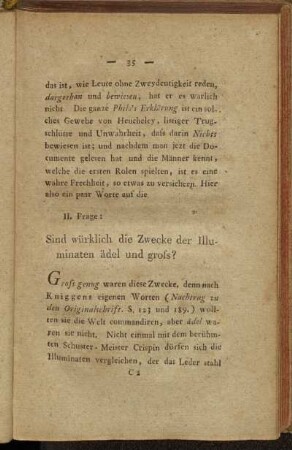 — 35 —
das ist, wie Leute ohne Zweydeutigkeit reden,
dargethan und bewiesen, hat er es warlich
nicht. Die ganze Philo's Erklärung ist ein sol-
ches Gewebe von Heucheley, listiger Trug-
schlüsse und Unwahrheit, daſs darin Nichts
bewiesen ist; und nachdem man jezt die Do-
cumente gelesen hat und die Männer kennt,
welche die ersten Rolen spielten, ist es eine
wahre Frechheit, so etwas zu versichern. Hier
also ein paar Worte auf die
II. Frage:
Sind würklich die Zwecke der Illu-
minaten ädel und groſs?
Groſs genug waren diese Zwecke, denn nach
Kniggens eigenen Worten (Nachtrag zu
den Originalschrift. S. 123 und 189.) woll-
ten sie die Welt commandiren, aber ädel wa-
ren sie nicht. Nicht einmal mit dem berühm-
ten Schuster-Meister Crispin dürfen sich die
Illuminaten vergleichen, der das Leder stahl
C 2